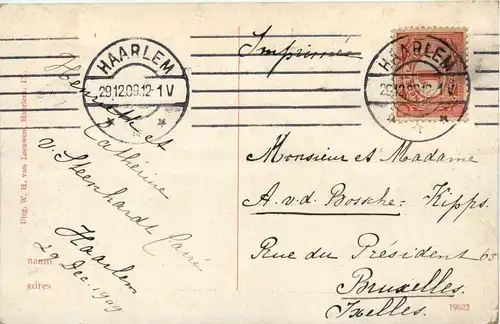 HAARLEM
29.12.09.12-1 V
HAARLEM
29.12.09.12-1 V
Imprimé
Henriette et
Cathérine
v. Steenhardt Carré
Haarlem
29 Dec. 1909
Monsieur et Madame
A. v. d. Bossche-Kipps.
Rue du Président 63
Bruxelles.
Ixelles.
Uitg. W. H. van Leeuwen, Haarlem.
naam
adres
19623